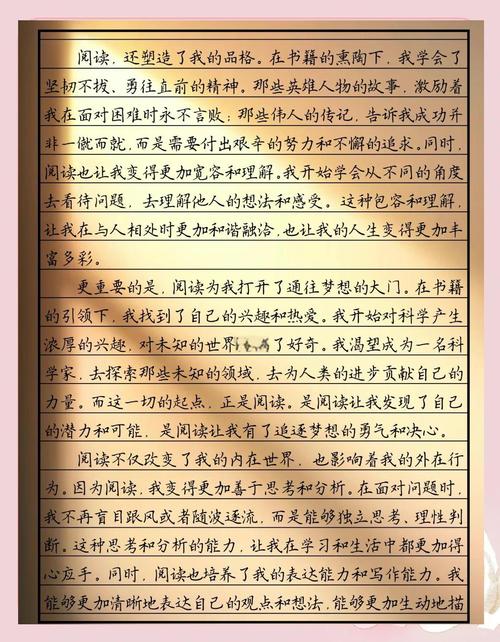 阅读，还塑造了我的品格。在书籍的熏陶下，我学会了
坚韧不拔、勇往直前的精神。那些英雄人物的故事，激励着
我在面对困难时永不言败；那些伟人的传记，告诉我成功并
非一蹴而就，而是需要付出艰辛的努力和不懈的追求。同时，
阅读也让我变得更加宽容和理解。我开始学会从不同的角度
去看待问题，去理解他人的想法和感受。这种包容和理解，
让我在与人相处时更加和谐融洽，也让我的人生变得更加丰
富多彩。
更重要的是，阅读为我打开了通往梦想的大门。在书籍
的引领下，我找到了自己的兴趣和热爱。我开始对科学产生
浓厚的兴趣，对未知的世界了好奇。我渴望成为一名科
学家，去探索那些未知的领域，去为人类的进步贡献自己的
力量。而这一切的起点，正是阅读。是阅读让我发现了自己
的潜力和可能，是阅读让我有了追逐梦想的勇气和决心。
阅读不仅改变了我的内在世界，也影响着我的外在行
为。因为阅读，我变得更加善于思考和分析。在面对问题时，
我不再盲目跟风或者随波逐流，而是能够独立思考、理性判
断。这种思考和分析的能力，让我在学习和生活中都更加得
心应手。同时，阅读也培养了我的表达能力和写作能力。我
能够更加清晰地表达自己的观点和想法，能够更加生动地描